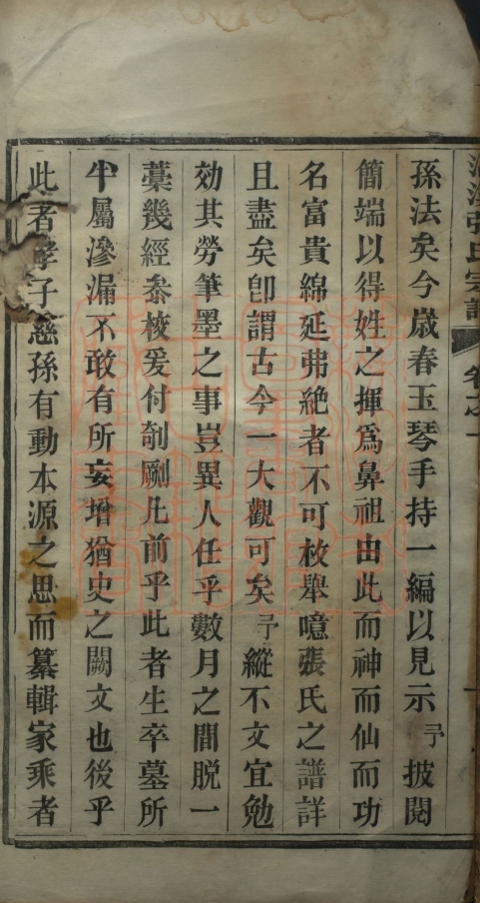 張氏宗譜 卷之一
孫法矣今歲春玉琴手持一編以見示予披閱
簡端以得姓之揮爲鼻祖由此而神而仙而功
名富貴綿延弗絶者不可枚舉噫張氏之譜詳
且盡矣卽謂古今一大觀可矣予縱不文宜勉
効其勞筆墨之事豈異人任乎數月之間脫一
藁幾經叅校爰付剞劂凡前乎此者生卒墓所
半屬滲漏不敢有所妄增猶史之闕文也後乎
此者孝子慈孫有動本源之思而纂輯家乘者